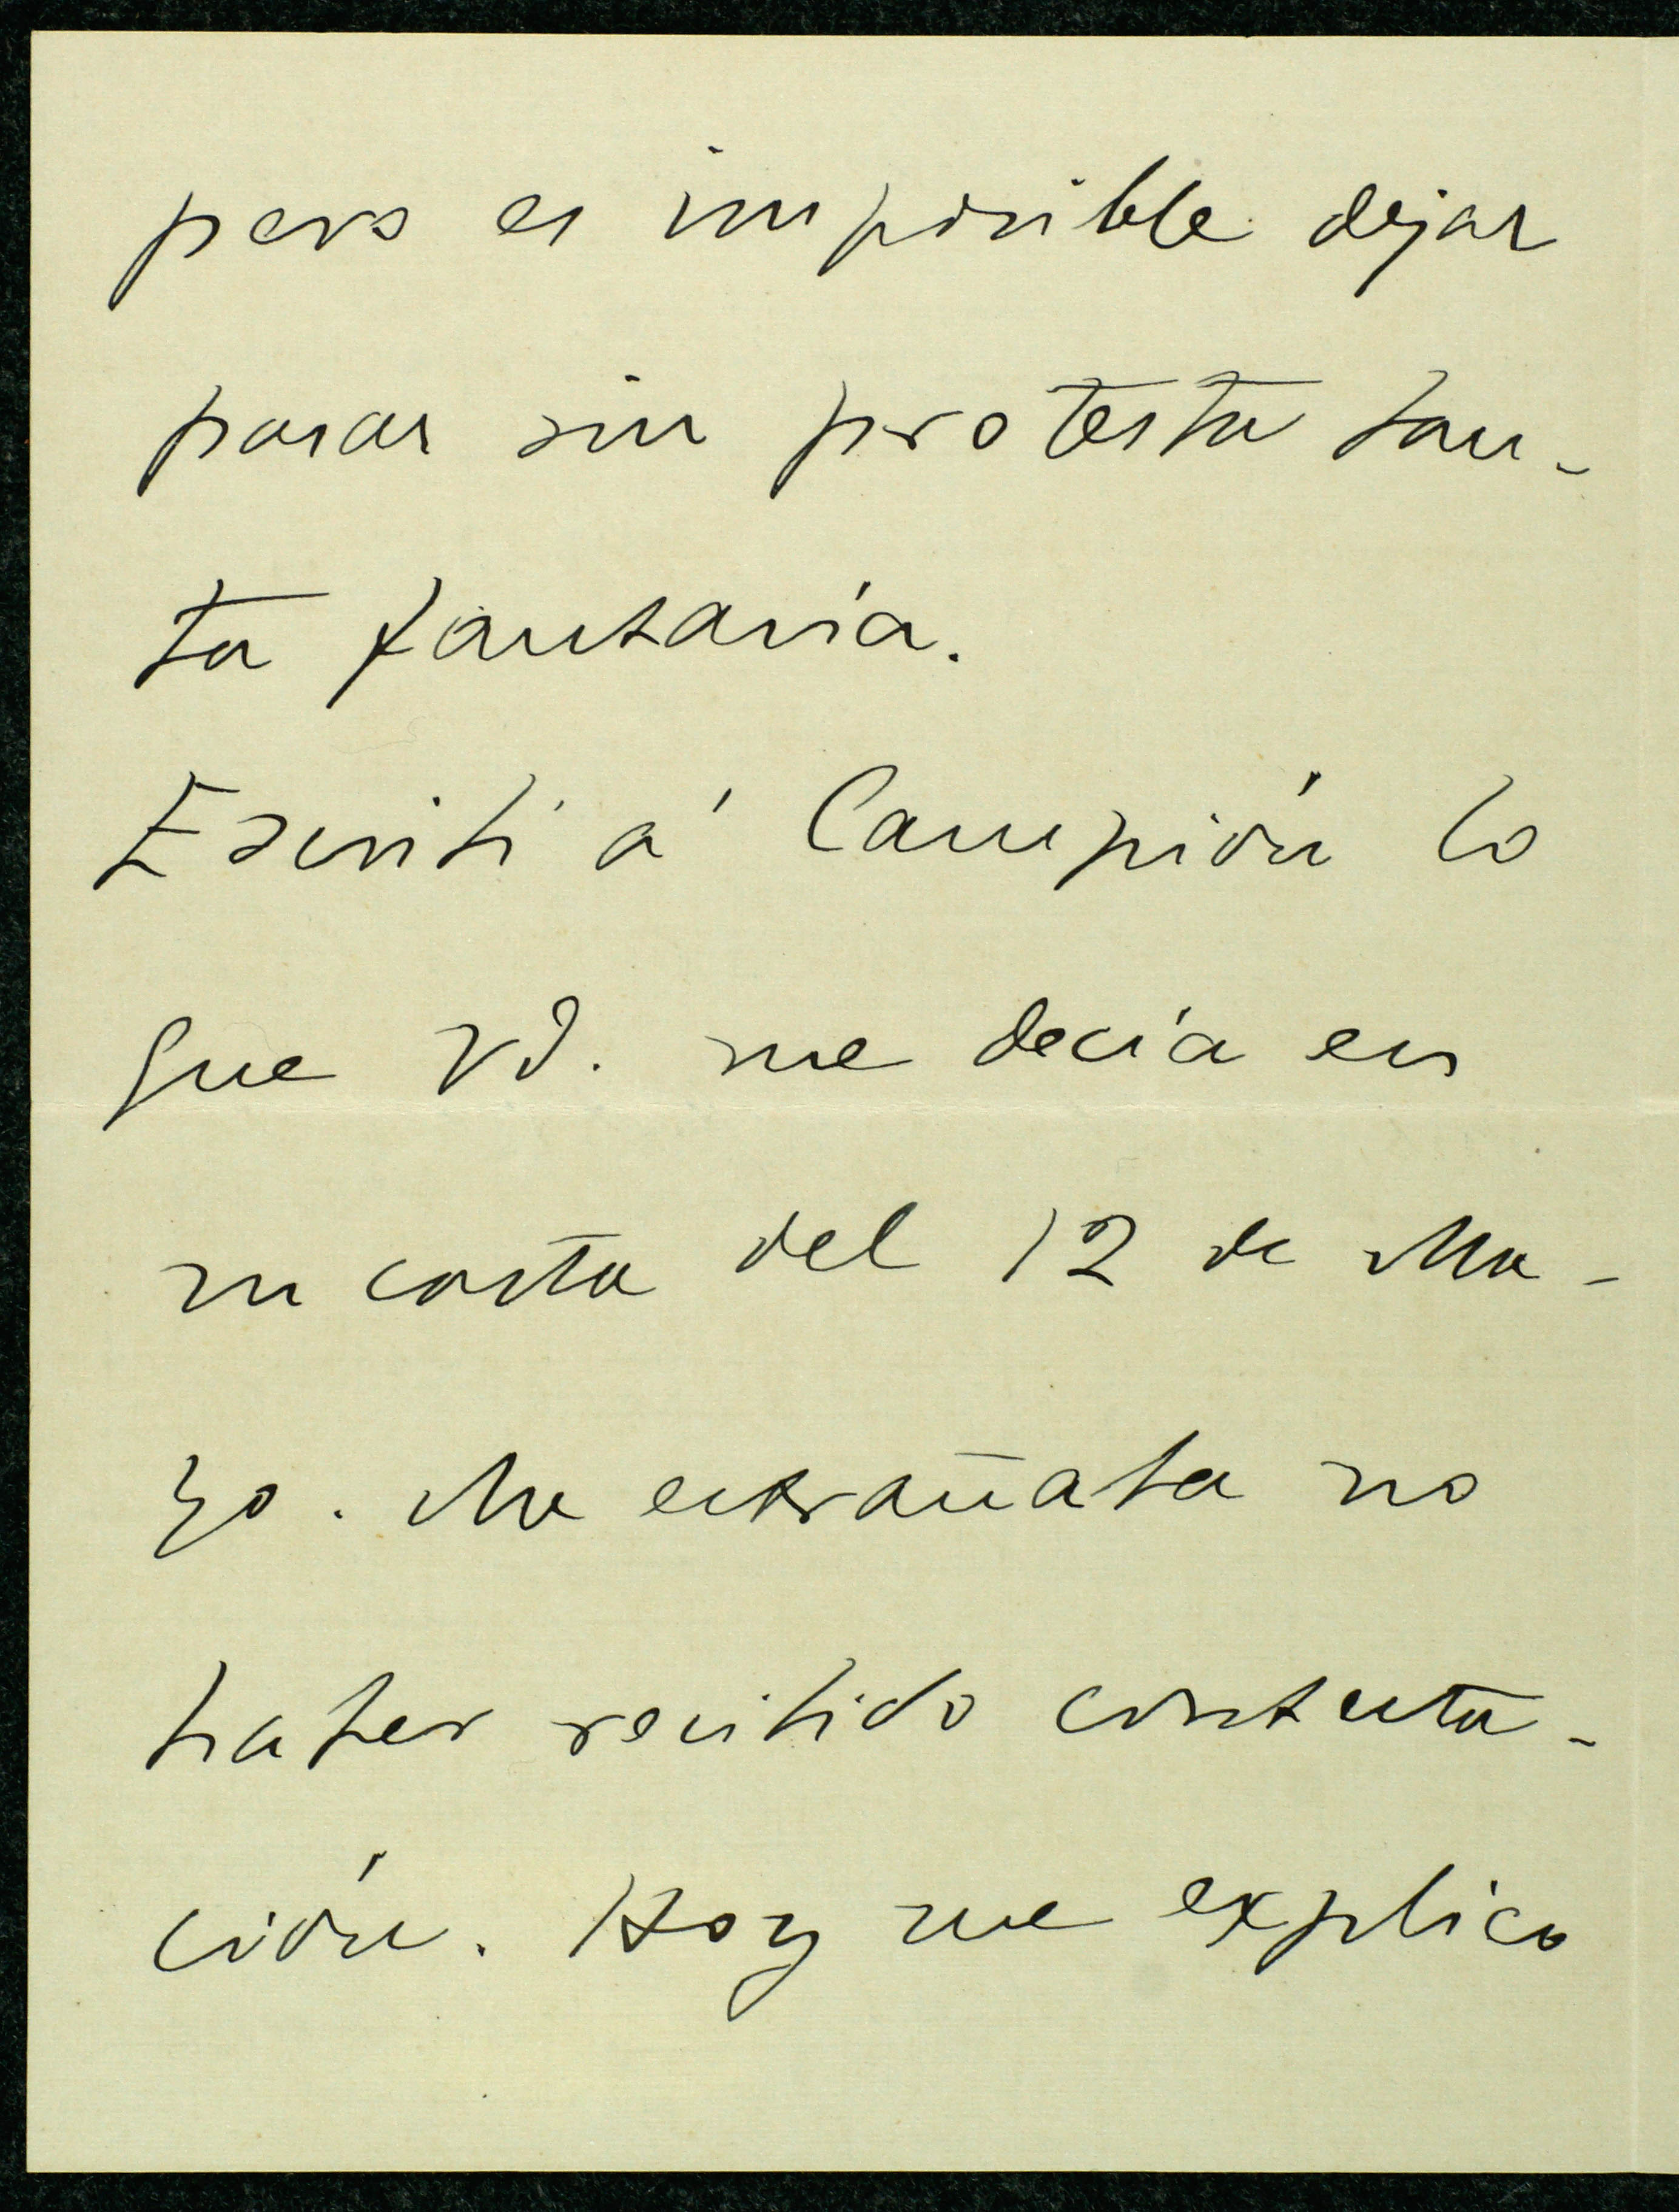 pero es imposible dejar
pasar sin protesta tan-
ta fantasía.
Escribí á Campión lo
que Vd. me decía en
su carta del 12 de Ma-
yo. Me extrañaba no
haber recibido contesta-
ción. Hoy me explico